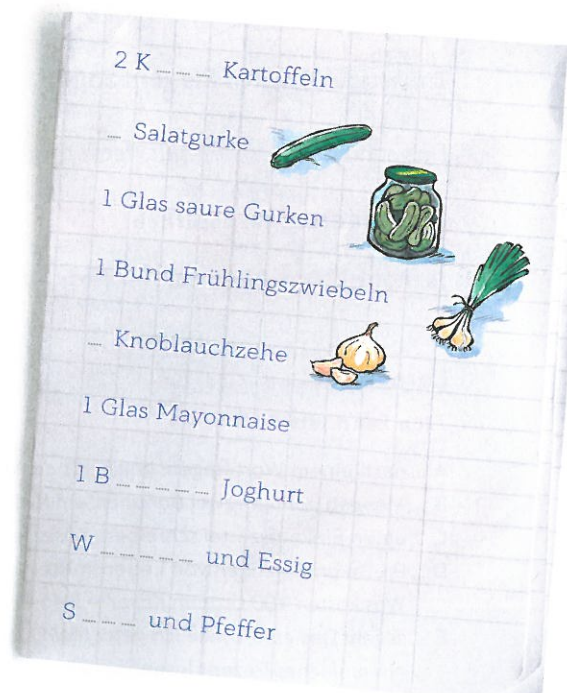 2 K _ _ _ Kartoffeln
_ Salatgurke
1 Glas saure Gurken
1 Bund Frühlingszwiebeln
_ Knoblauchzehe
1 Glas Mayonnaise
1 B _ _ _ _ _ Joghurt
W _ _ _ _ _ und Essig
S _ _ _ und Pfeffer